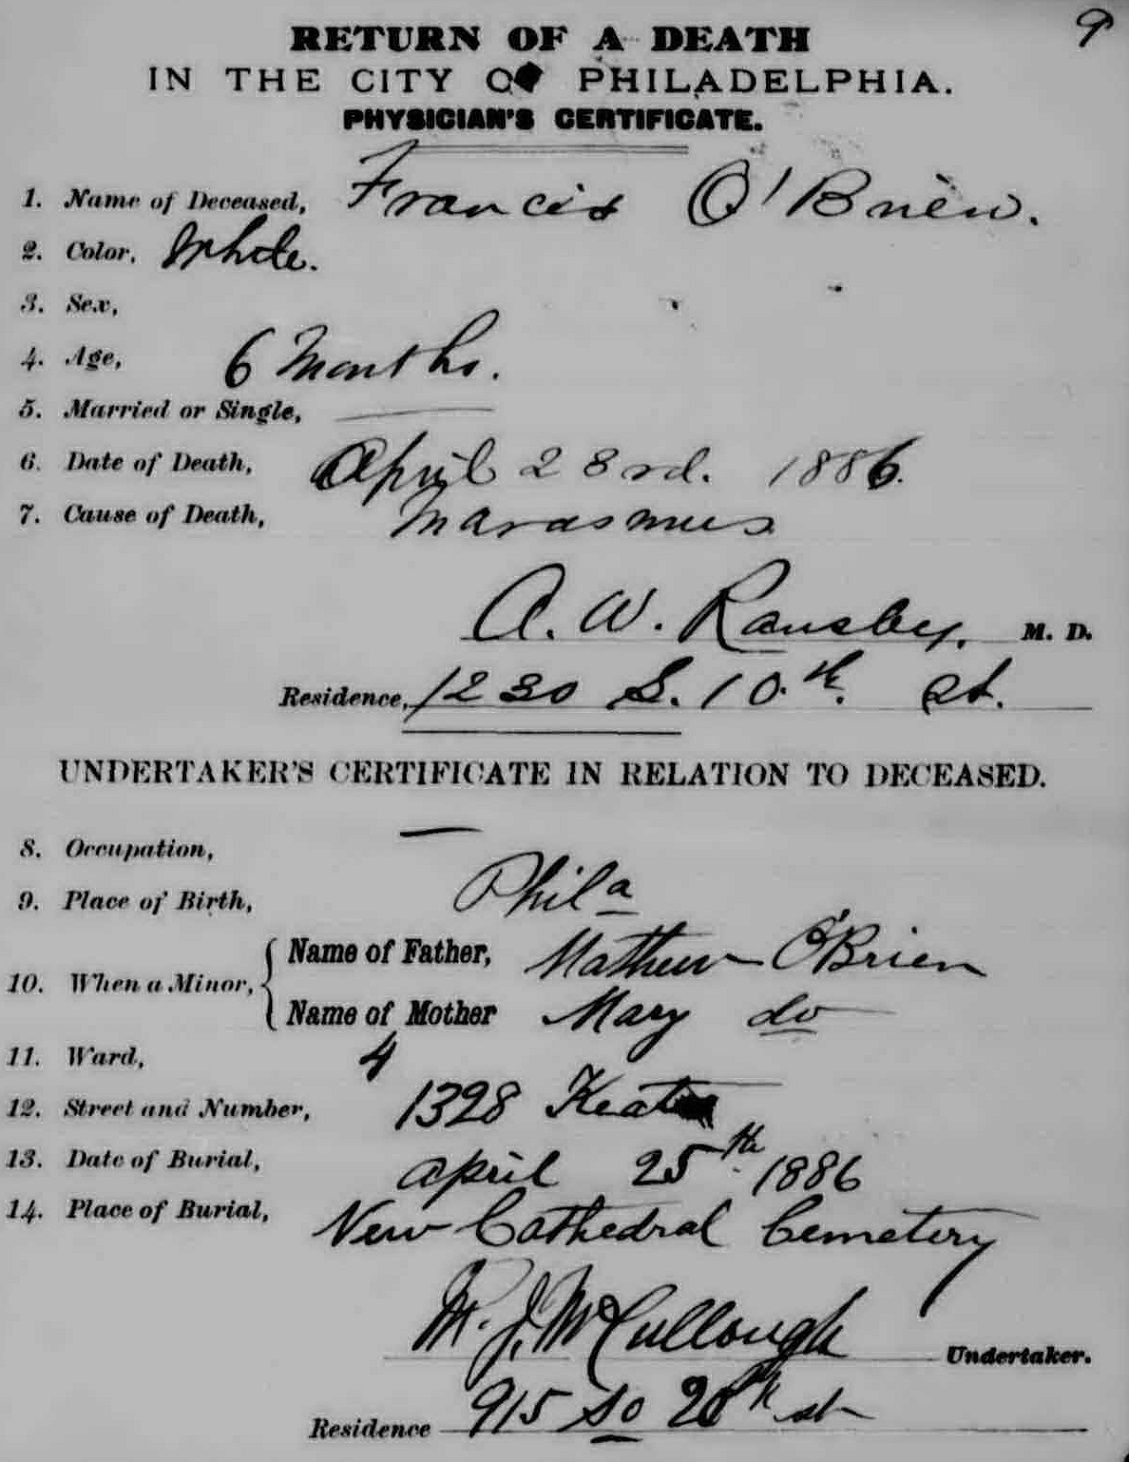 9
RETURN OF A DEATH
IN THE CITY OF PHILADELPHIA.
PHYSICIAN'S CERTIFICATE.
1. Name of Deceased, Francis O'Brien.
2. Color, White.
3. Sex,
4. Age, 6 Months.
5. Married or Single,
6. Date of Death, April 23rd. 1886.
7. Cause of Death, Marasmus
A. W. Ransley, M. D.
Residence, 1230 S. 10.th St.
UNDERTAKER'S CERTIFICATE IN RELATION TO DECEASED.
8. Occupation,
9. Place of Birth, Phila
10. When a Minor, Name of Father, Mathew O'Brien
Name of Mother Mary do
11. Ward, 4
12. Street and Number, 1328
13. Date of Burial, April 25th 1886
14. Place of Burial, New Cathedral Cemetery
M. J. McCullough Undertaker.
Residence 915 So st